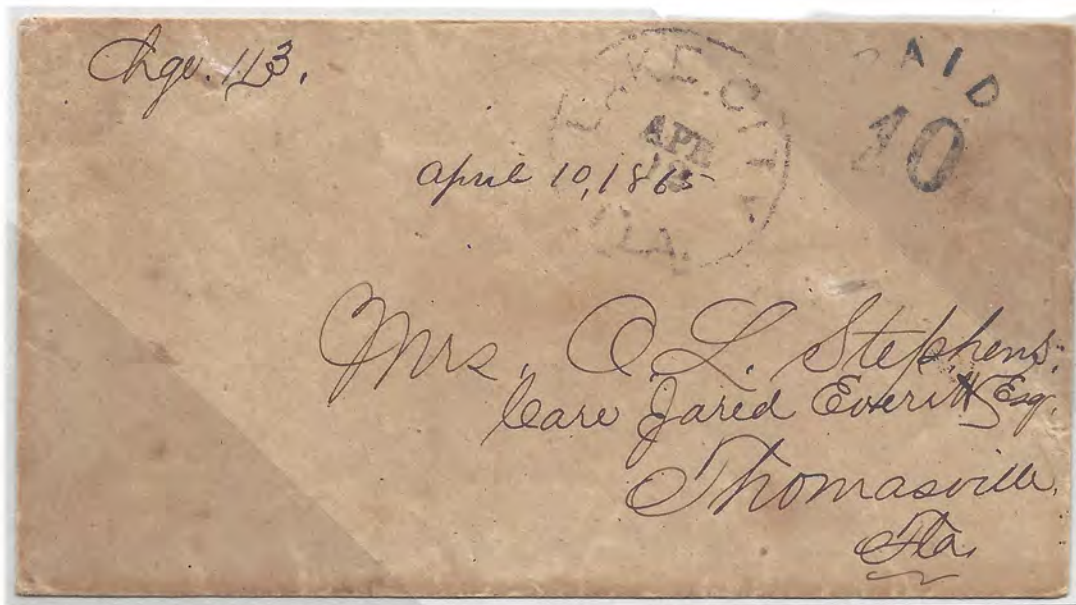 Chgo. 113.
LAKE. CITY
APR
10
FLA.
PAID
10
april 10, 1865
Mrs. O. L. Stephens.
Care Jared Everitt Esq.
Thomasville,